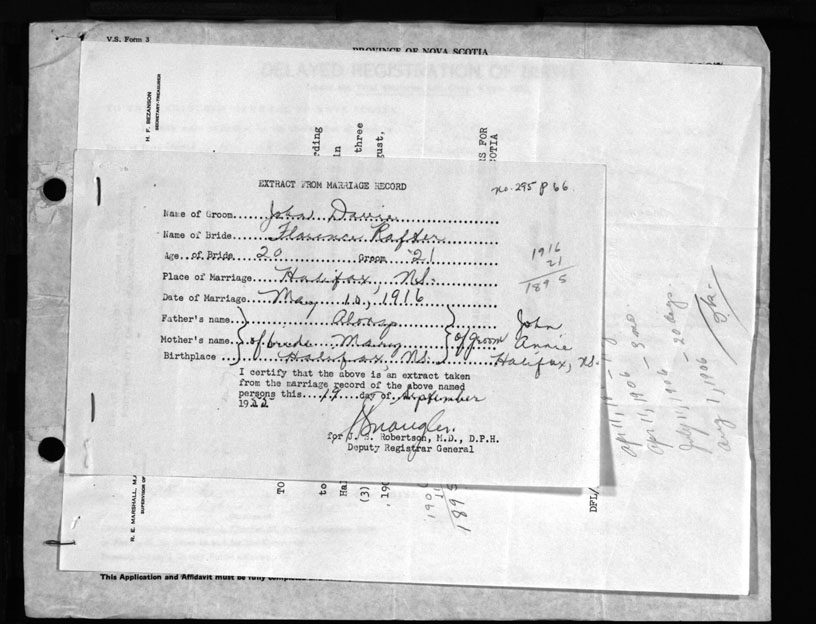 V.S. Form 3
PROVINCE OF NOVA SCOTIA
DELAYED REGISTRATION OF
H. F. BEZANSON
SECRETARY-TREASURER
rding
in
three
gust,
S FOR
COTIA
EXTRACT FROM MARRIAGE RECORD
no. 295 p 66.
Name of Groom John Davie
Name of Bride Florence Rafter
Age of Bride 20 Groom 21
Place of Marriage Halifax, NS.
Date of Marriage May 10, 1916
Father's name John
Mother's name of bride Mary of Groom Annie
Birthplace Halifax NS. Halifax, NS.
1916
21
1895
I certify that the above is an extract taken
from the marriage record of the above named
persons this 19 day of September
19
for J. S. Robertson, M.D., D.P.H.
Deputy Registrar General
april 11, 1906 — 3 mo.
July 11, 1906 — 20 days.
aug 1, 1906
R. E. MARSHALL, M.A
SUPERVISOR OF
TO
to
Hal
(3)
,190
190
11
1895
DFL/
This Application and Affidavit must be fully completed